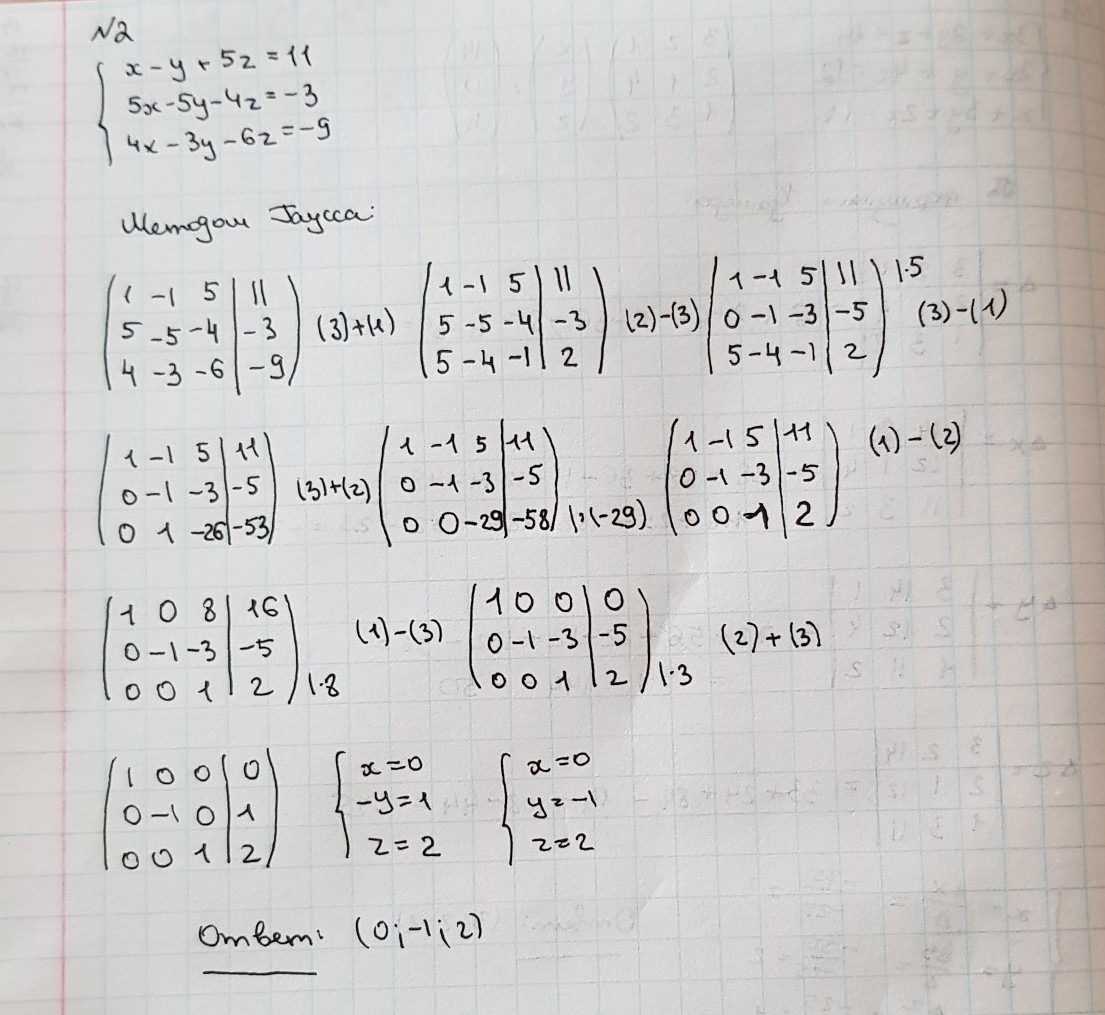 N2
x - y + 5z = 11
5x - 5y - 4z = -3
4x - 3y - 6z = -9
Методом Гаусса:
1 -1 5 | 11
5 -5 -4 | -3
4 -3 -6 | -9
(3)+(1)
1 -1 5 | 11
5 -5 -4 | -3
5 -4 -1 | 2
(2)-(3)
1 -1 5 | 11
0 -1 -3 | -5
5 -4 -1 | 2
|·5
(3)-(1)
1 -1 5 | 11
0 -1 -3 | -5
0 1 -26 | -53
(3)+(2)
1 -1 5 | 11
0 -1 -3 | -5
0 0 -29 | -58
|:(-29)
1 -1 5 | 11
0 -1 -3 | -5
0 0 1 | 2
(1)-(2)
1 0 8 | 16
0 -1 -3 | -5
0 0 1 | 2
|·8
(1)-(3)
1 0 0 | 0
0 -1 -3 | -5
0 0 1 | 2
|·3
(2)+(3)
1 0 0 | 0
0 -1 0 | 1
0 0 1 | 2
x = 0
-y = 1
z = 2
x = 0
y = -1
z = 2
Ответ: (0; -1; 2)